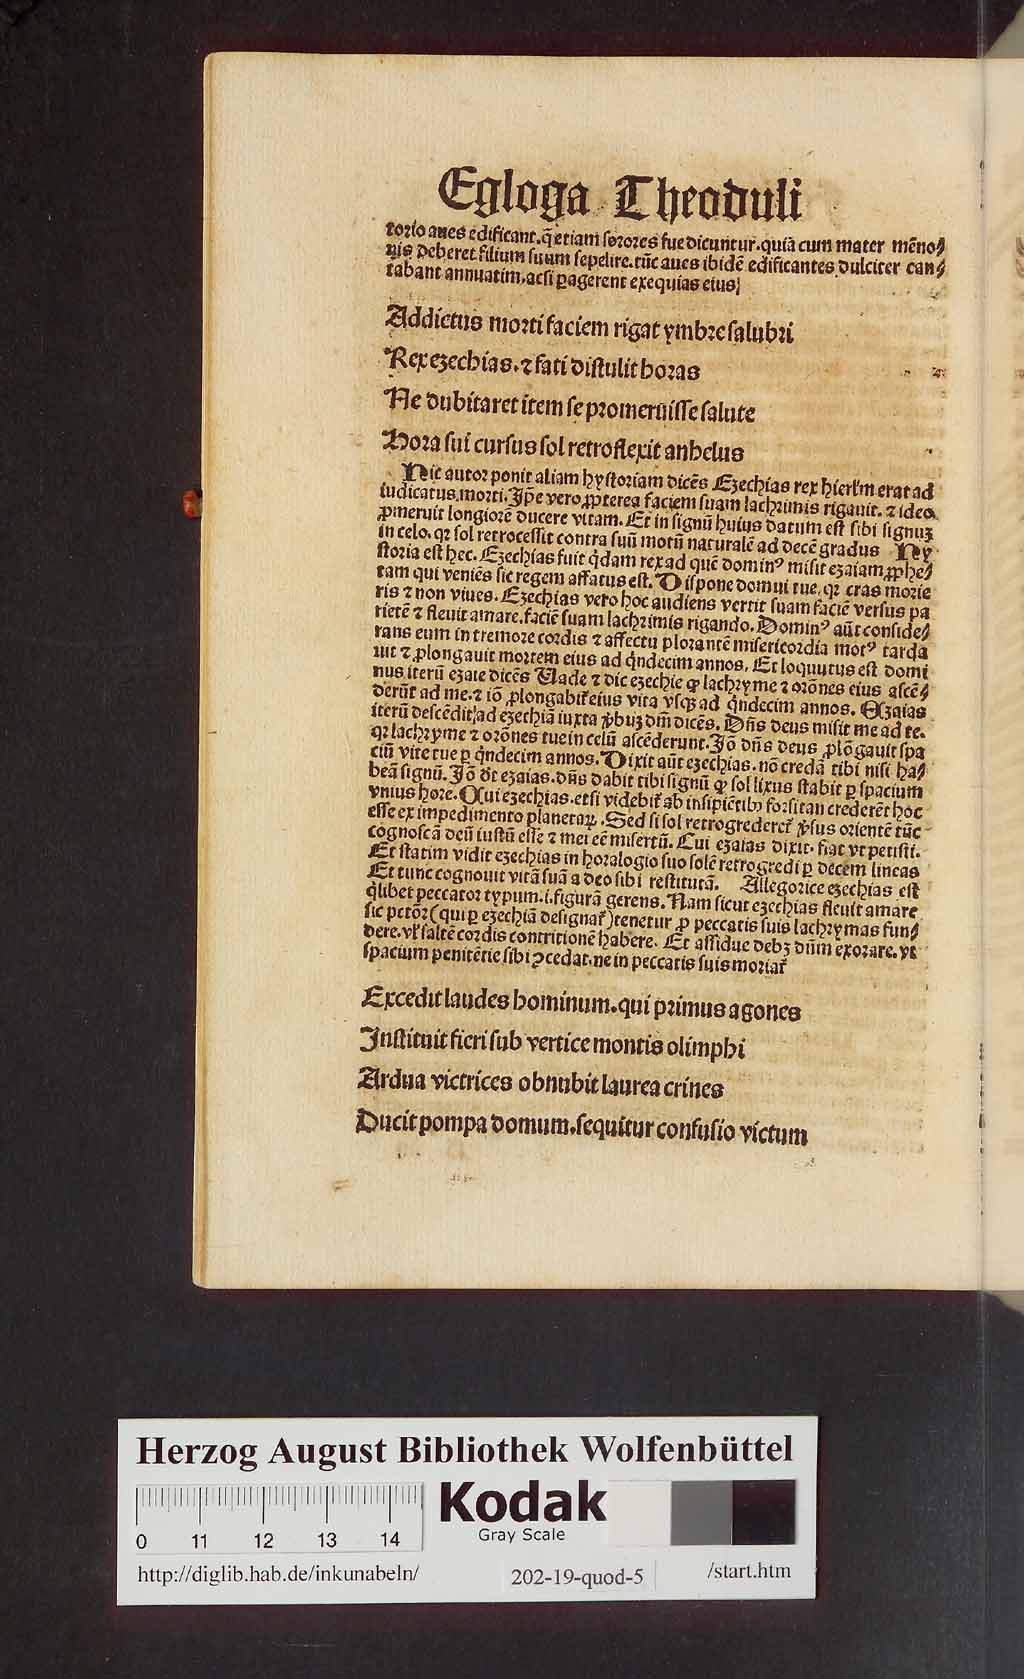 Egloga Theoduli
torio aues edificant. q̄ etiam sorores sue dicuntur. quia cum mater mēno/
nis deberet filium suum sepelire. tūc aues ibidē edificantes dulciter can/
tabant annuatim. acsi ꝑagerent exequias eius;
Addictus morti faciem rigat ymbre salubri
Rex ezechias. ⁊ fati distulit horas
Ne dubitaret item se promeruisse salute
Hora sui cursus sol retroflexit anhelus
Hic autor ponit aliam hystoriam dicēs Ezechias rex hierl'm erat ad
iudicatus morti. Ip̄e vero ꝓpterea faciem suam lachrimis rigauit. ⁊ ideo
ꝓmeruit longiorē ducere vitam. Et in signū huius datum est sibi signuꝫ
in celo. qꝛ sol retrocessit contra suū motū naturalē ad decē gradus Hy
storia est hec. Ezechias fuit q̇dam rex ad quē dominꝰ misit ezaiam ꝓphe/
tam qui veniēs sic regem affatus est. Dispone domui tue. qꝛ cras morie
ris ⁊ non viues. Ezechias vero hoc audiens vertit suam faciē versus pa
rietē ⁊ fleuit amare. faciē suam lachrimis rigando. Dominꝰ aūt conside/
rans eum in tremore cordis ⁊ affectu plorantē misericordia motꝰ tarda
uit ⁊ ꝓlongauit mortem eius ad q̇ndecim annos. Et loquutus est domi
nus iterū ezaie dicēs Uade ⁊ dic ezechie ꝙ lachryme ⁊ orōnes eius ascē/
derūt ad me. ⁊ iō ꝓlongabit̄ eius vita vsqꝫ ad q̇ndecim annos. Ezaias
iterū descēdit ad ezechiā iuxta v̓buꝫ dm̄ dicēs. Dn̄s deus misit me ad te.
qꝛ lachryme ⁊ orōnes tue in celū ascēderunt. Iō dn̄s deus ꝓlōgauit spa
ciū vite tue ꝑ q̇ndecim annos. Dixit aūt ezechias. nō credā tibi nisi ha/
beā signū. Iō dr̄t ezaias. dn̄s dabit tibi signū ꝙ sol fixus stabit ꝑ spacium
vnius hore. Cui ezechias. etsi videbit̄ ab insipiētibꝰ forsitan crederēt hoc
esse ex impedimento planetaꝝ. Sed si sol retrogrederet̄ v̓sus orientē tūc
cognoscā deū iustū esse ⁊ mei eē misertū. Cui ezaias dixit. fiat vt petisti.
Et statim vidit ezechias in horalogio suo solē retrogredi ꝑ decem lineas
Et tunc cognouit vitā suā a deo sibi restitutā. Allegorice ezechias est
q̇libet peccator typum .i. figurā gerens. Nam sicut ezechias fleuit amare
sic pctōr (qui ꝑ ezechiā designat̄) tenetur ꝓ peccatis suis lachrymas fun/
dere. vl' saltē cordis contritionē habere. Et assidue debꝫ dūm exorare. vt
spacium penitētie sibi ꝯcedat. ne in peccatis suis moriat̄
Excedit laudes hominum. qui primus agones
Instituit fieri sub vertice montis olimphi
Ardua victrices obnubit laurea crines
Ducit pompa domum. sequitur confusio victum
Herzog August Bibliothek Wolfenbüttel
Kodak
Gray Scale
0 11 12 13 14
http://diglib.hab.de/inkunabeln/ 202-19-quod-5 /start.htm